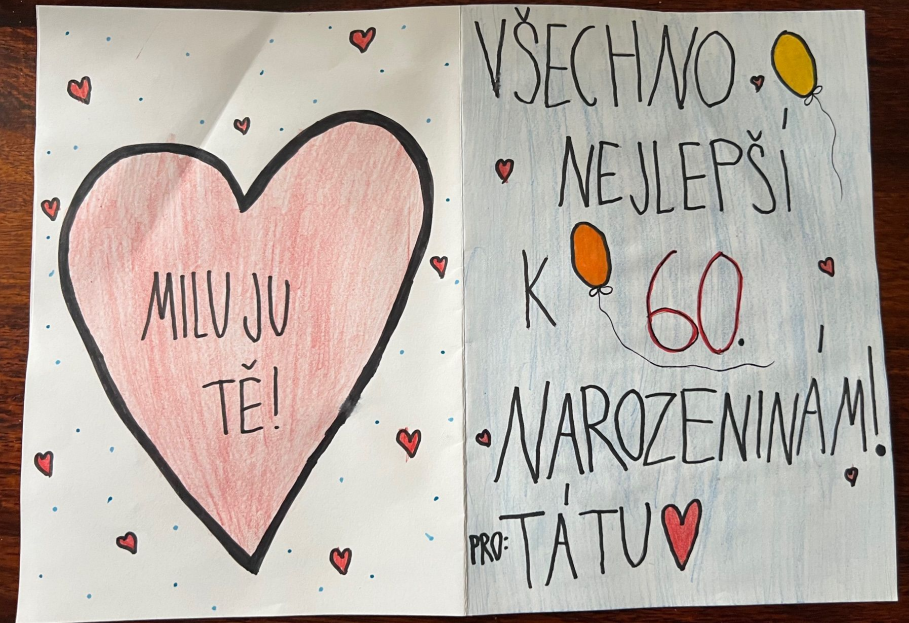 MILUJU
TĚ!
VŠECHNO
NEJLEPŠÍ
K 60.
NAROZENINÁM!
PRO: TÁTU